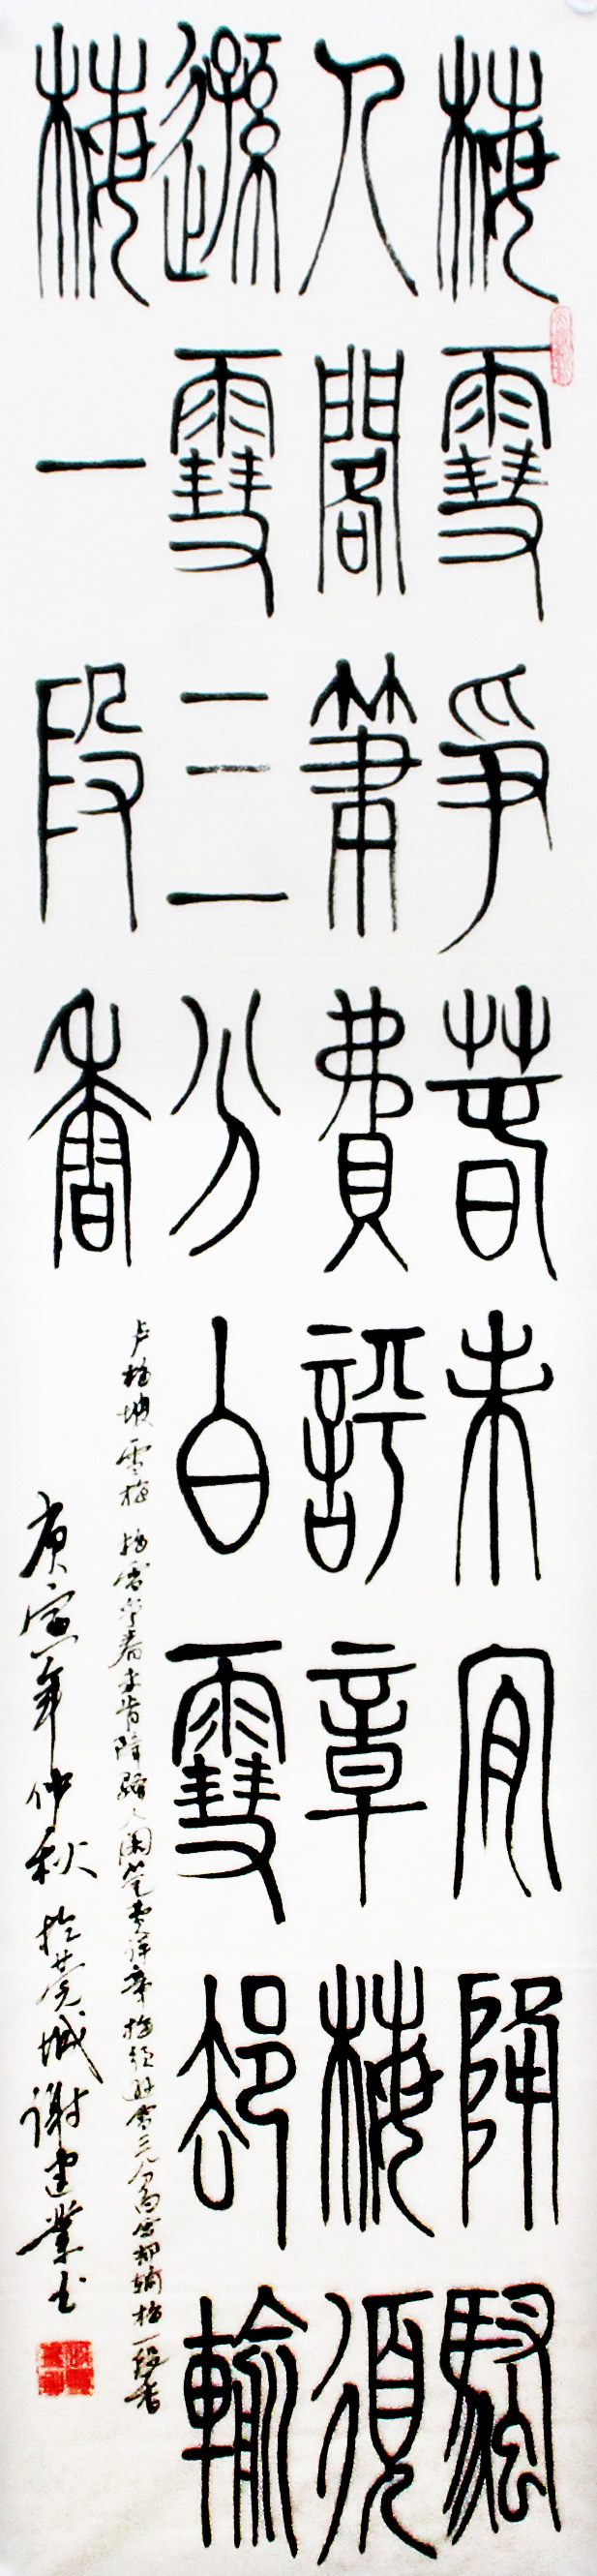 梅雪爭萅未肎降騷
人閣筆費評章梅須
遜雪三分白雪卻輸
梅一段香
卢梅坡 雪梅 梅雪争春未肯降 骚人阁笔费评章 梅须逊雪三分白 雪却输梅一段香
庚寅年仲秋於莞城谢建业书